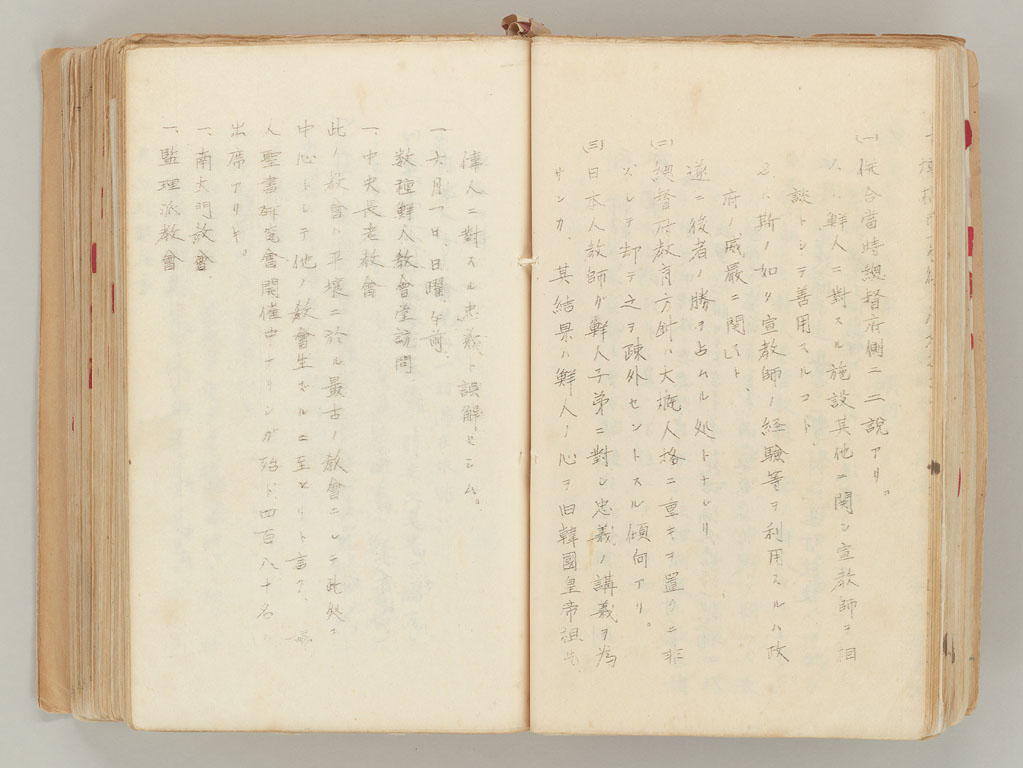 (一)併合當時總督府側ニ二説アリ。
1、鮮人ニ對スル施設其他ニ関シ宣教師ニ相
談トシテ善用スルコト
2、斯ノ如ク宣教師ノ経験等ヲ利用スルハ政
府ノ威厳ニ関ス、ト
遂ニ後者ノ勝ヲ占ムル処トナレリ
(二)總督府教育方針ハ大概人格ニ重キヲ置クニ非
ズシテ却テ之ヲ疎外セントスル傾向アリ。
(三)日本人教師ガ鮮人子弟ニ對シ忠義ノ講義ヲ為
サンカ、其結果ハ鮮人ノ心ヲ旧韓國皇帝祖先
偉人ニ對スル忠義ト誤解セシム。
一、六月一日、日曜、午前、
数種鮮人教會堂訪問
一、中央長老教會
此ノ教會ハ平壤ニ於ル最古ノ教會ニシテ此処ヲ
中心トシテ他ノ教會生ズルニ至レリト言フ、
人聖書研究會開催中ナリシガ殆ド四百八十名ノ
出席アリキ。
一、南大門教會
一、監理派教會